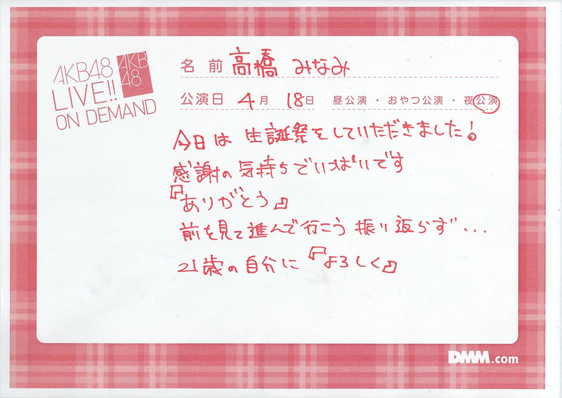 AKB48
LIVE!!
ON DEMAND
AKB
48
名 前 高橋 みなみ
公演日 4月 18日 昼公演・おやつ公演・夜公演
今日は 生誕祭をしていただきました!
感謝の気持ちでいっぱいです
『ありがとう』
前を見て進んで行こう 振り返らず…
21歳の自分に『よろしく』
DMM.com